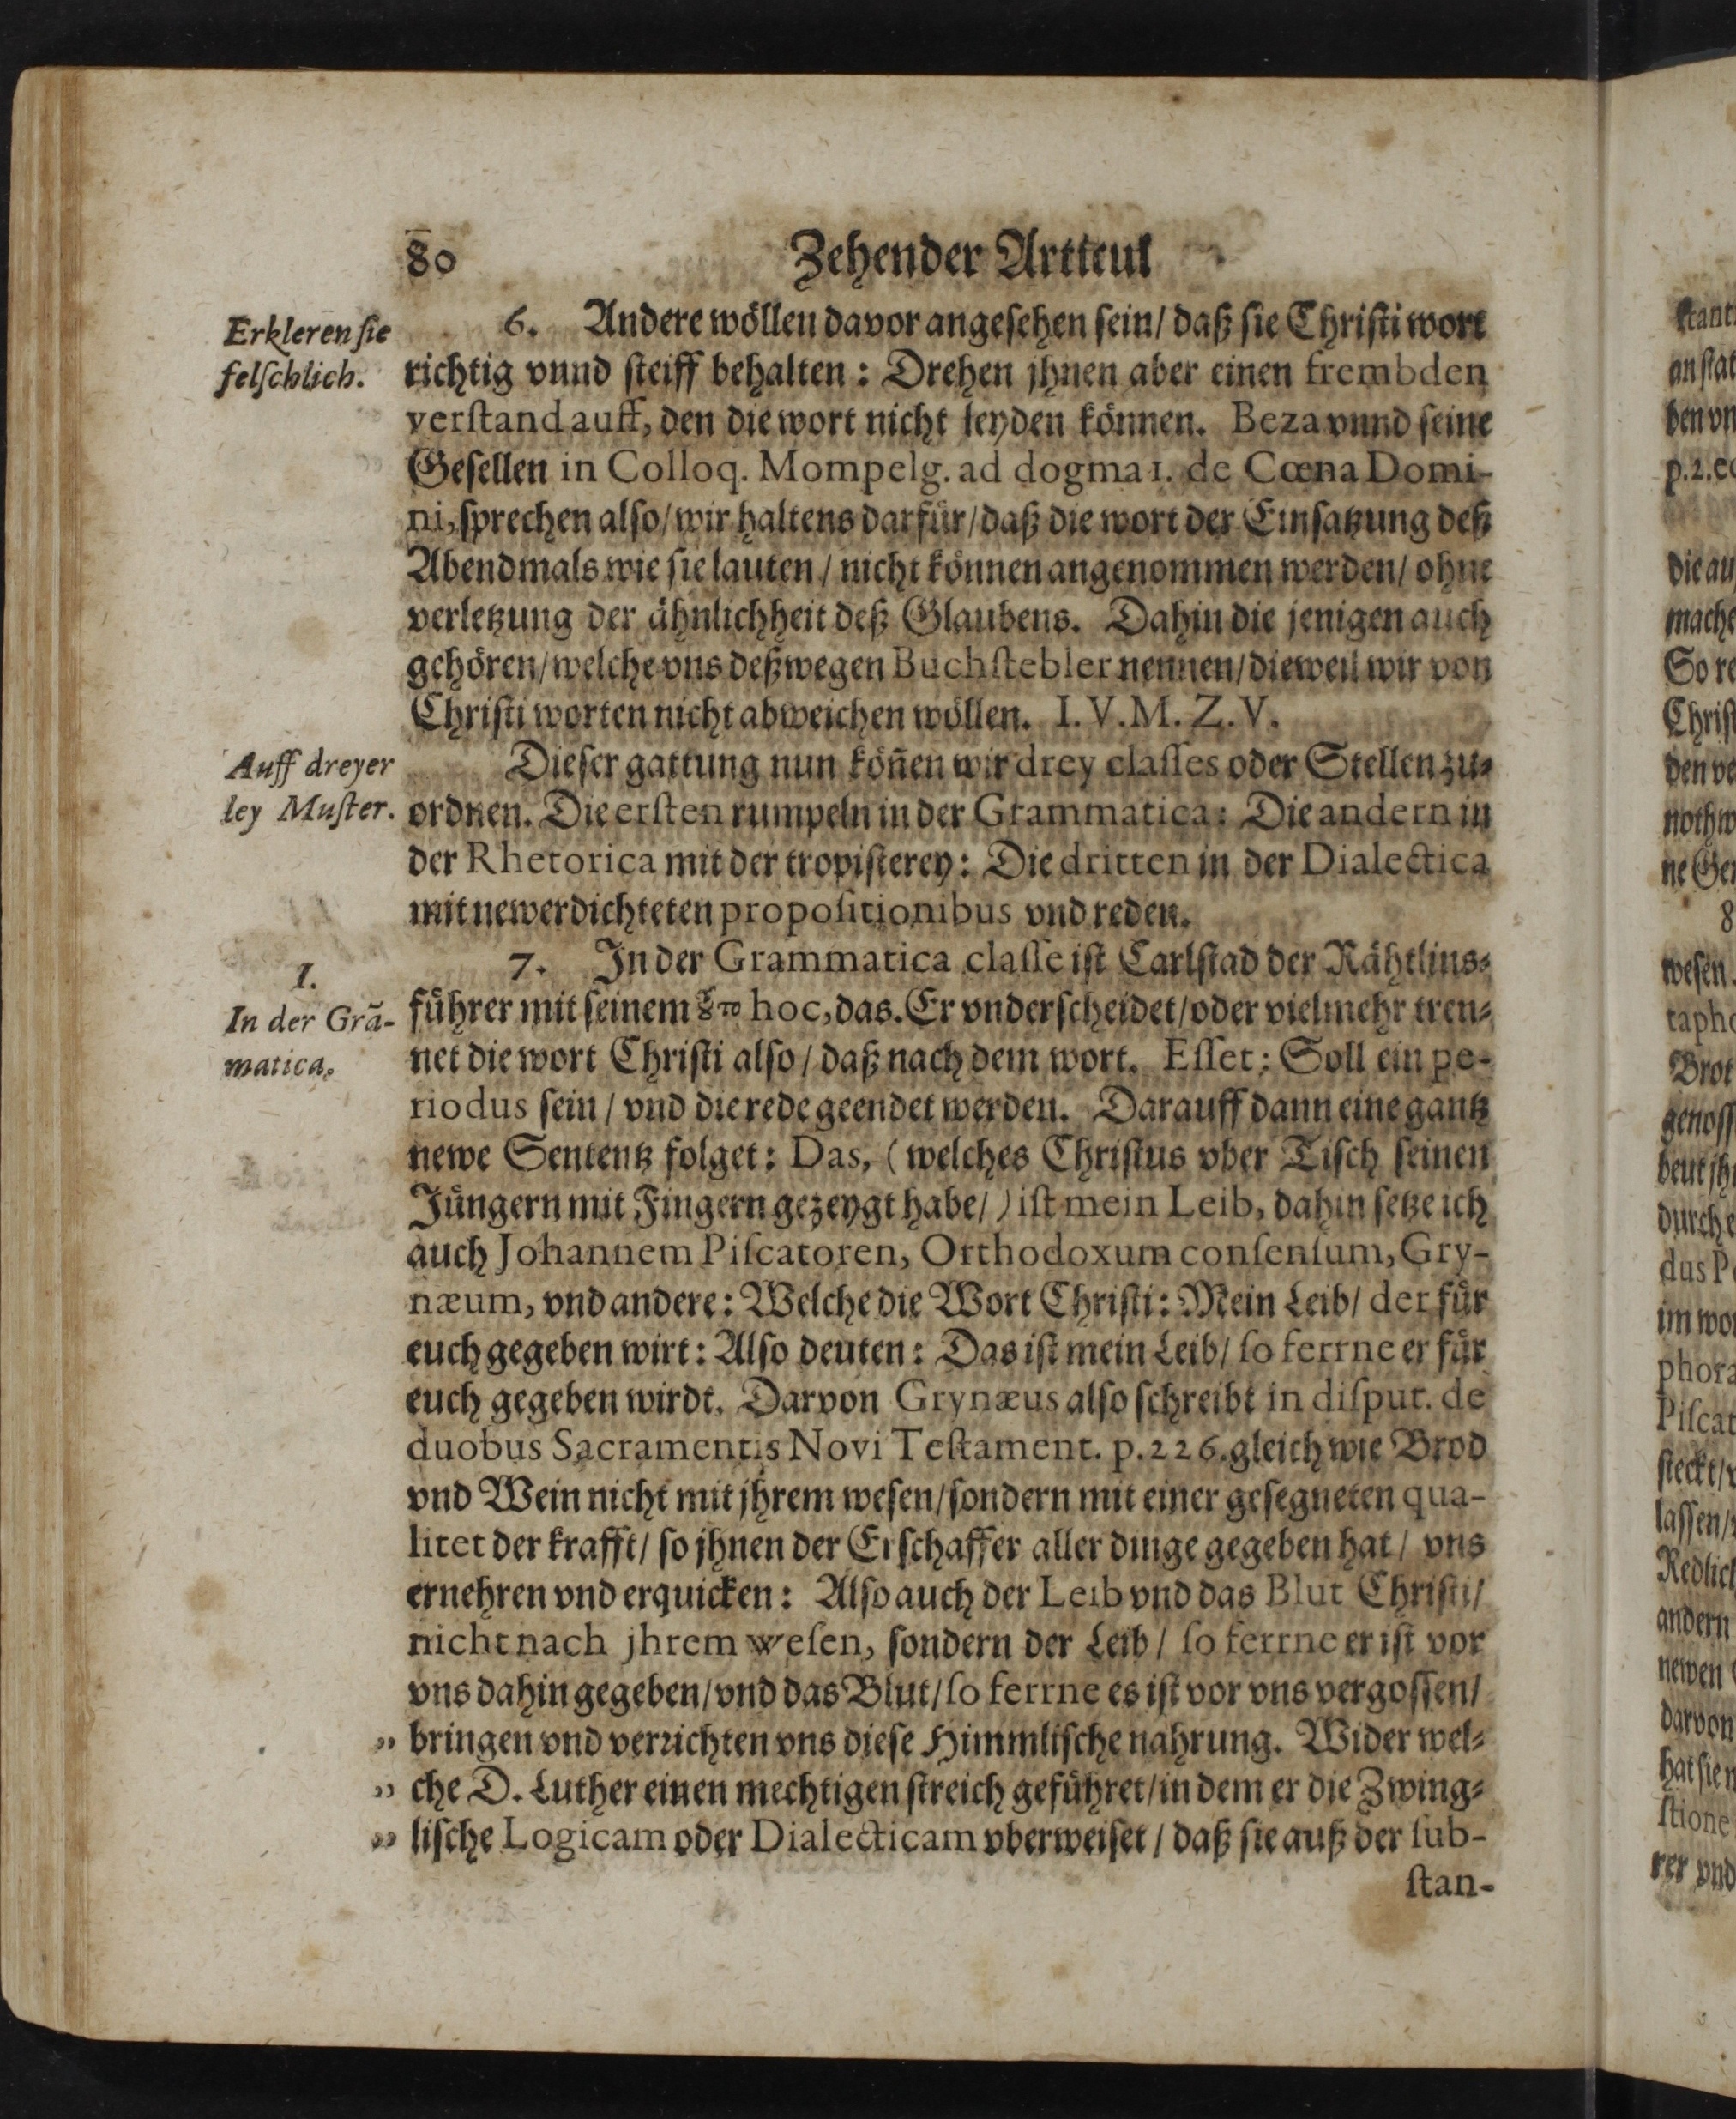 80 Zehender Articul
Erkleren ſie
felſchlich.
6. Andere wöllen davor angeſehen ſein/ daß ſie Chriſti wort
richtig vnnd ſteiff behalten: Drehen jhnen aber einen frembden
verſtand auff, den die wort nicht leyden können. Beza vnnd ſeine
Geſellen in Colloq. Mompelg. ad dogma 1. de Cœna Domi-
ni, ſprechen alſo/ wir haltens darfür/ daß die wort der Einſatzung deß
Abendmals wie ſie lauten/ nicht können angenommen werden/ ohne
verletzung der ähnlichheit deß Glaubens. Dahin die jenigen auch
gehören/ welche vns deßwegen Buchſtebler nennen/ dieweil wir von
Chriſti worten nicht abweichen wöllen. I. V. M. Z. V.
Auff dreyer
ley Muſter.
Dieſer gattung nun kön̄en wir drey claſſes oder Stellen zu-
ordnen. Die erſten rumpeln in der Grammatica: Die andern in
der Rhetorica mit der tropiſterey: Die dritten in der Dialectica
mit newerdichteten propoſitionibus vnd reden.
I.
In der Grā-
matica.
7. In der Grammatica claſſe iſt Carlſtad der Rähtlins-
führer mit ſeinem τȣ̃το hoc, das. Er vnderſcheidet/ oder vielmehr tren-
net die wort Chriſti alſo/ daß nach dem wort. Eſſet: Soll ein pe-
riodus ſein/ vnd die rede geendet werden. Darauff dann eine gantz
newe Sententz folget: Das, (welches Chriſtus vber Tiſch ſeinen
Jüngern mit Fingern gezeygt habe/) iſt mein Leib, dahin ſetze ich
auch Johannem Piſcatoren, Orthodoxum conſenſum, Gry-
næum, vnd andere: Welche die Wort Chriſti: Mein Leib/ der für
euch gegeben wirt: Alſo deuten: Das iſt mein Leib/ ſo ferrne er für
euch gegeben wirdt. Darvon Grynæus alſo ſchreibt in diſput. de
duobus Sacramentis Novi Teſtament. p. 226. gleich wie Brod
vnd Wein nicht mit jhrem weſen/ ſondern mit einer geſegneten qua-
litet der krafft/ ſo jhnen der Erſchaffer aller dinge gegeben hat/ vns
ernehren vnd erquicken: Alſo auch der Leib vnd das Blut Chriſti/
nicht nach jhrem weſen, ſondern der Leib/ ſo ferrne er iſt vor
vns dahin gegeben/ vnd das Blut/ ſo ferrne es iſt vor vns vergoſſen/
„ bringen vnd verrichten vns dieſe Himmliſche nahrung. Wider wel-
„ che D. Luther einen mechtigen ſtreich geführet/ in dem er die Zwing-
„ liſche Logicam oder Dialecticam vberweiſet/ daß ſie auß der ſub-
ſtan-